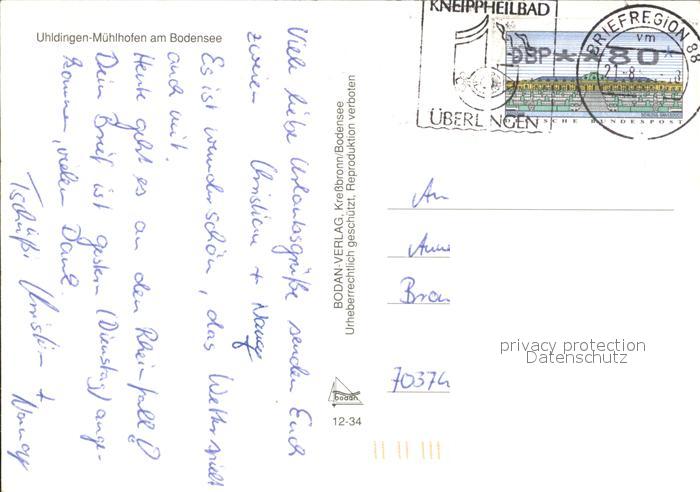 Uhldingen-Mühlhofen am Bodensee
Viele liebe Urlaubsgrüße senden Euch
zwei
Christian + Nancy
Es ist wunderschön, das Wetter spielt
auch mit.
Heute geht es an den Rheinfall
Dein Brief ist gestern (Dienstag) ange-
kommen, vielen Dank.
Tschüßi Christian + Nancy
BODAN-VERLAG, Kreßbronn/Bodensee
Urheberrechtlich geschützt, Reproduktion verboten
bodan
12-34
KNEIPPHEILBAD
ÜBERLINGEN
DBP**80*
DEUTSCHE BUNDESPOST
BRIEFREGION 88
vm
An
Anne
70374
privacy protection
Datenschutz